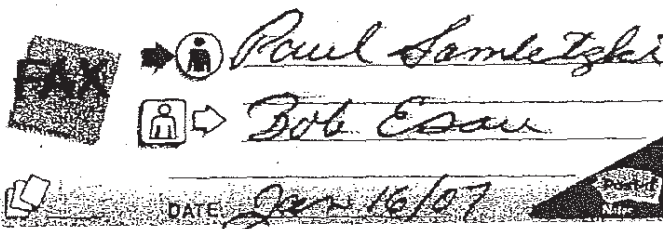 FAX
Paul Samletzki
Bob Esau
DATE Jan 16/07
Post-it
Notes